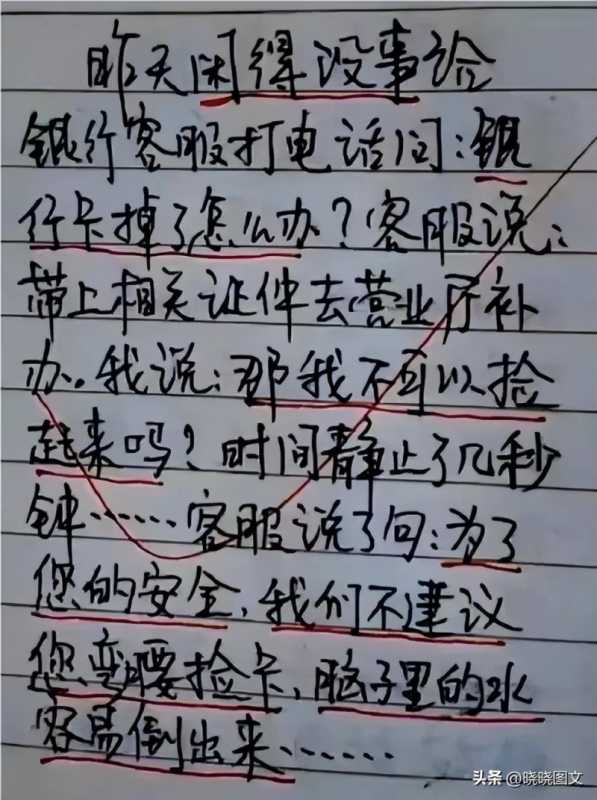 昨天闲得没事给
银行客服打电话问：银
行卡掉了怎么办？客服说：
带上相关证件去营业厅补
办。我说：那我不可以捡
起来吗？时间静止了几秒
钟……客服说了句：为了
您的安全，我们不建议
您弯腰捡卡，脑子里的水
容易倒出来……
头条 @晓晓图文